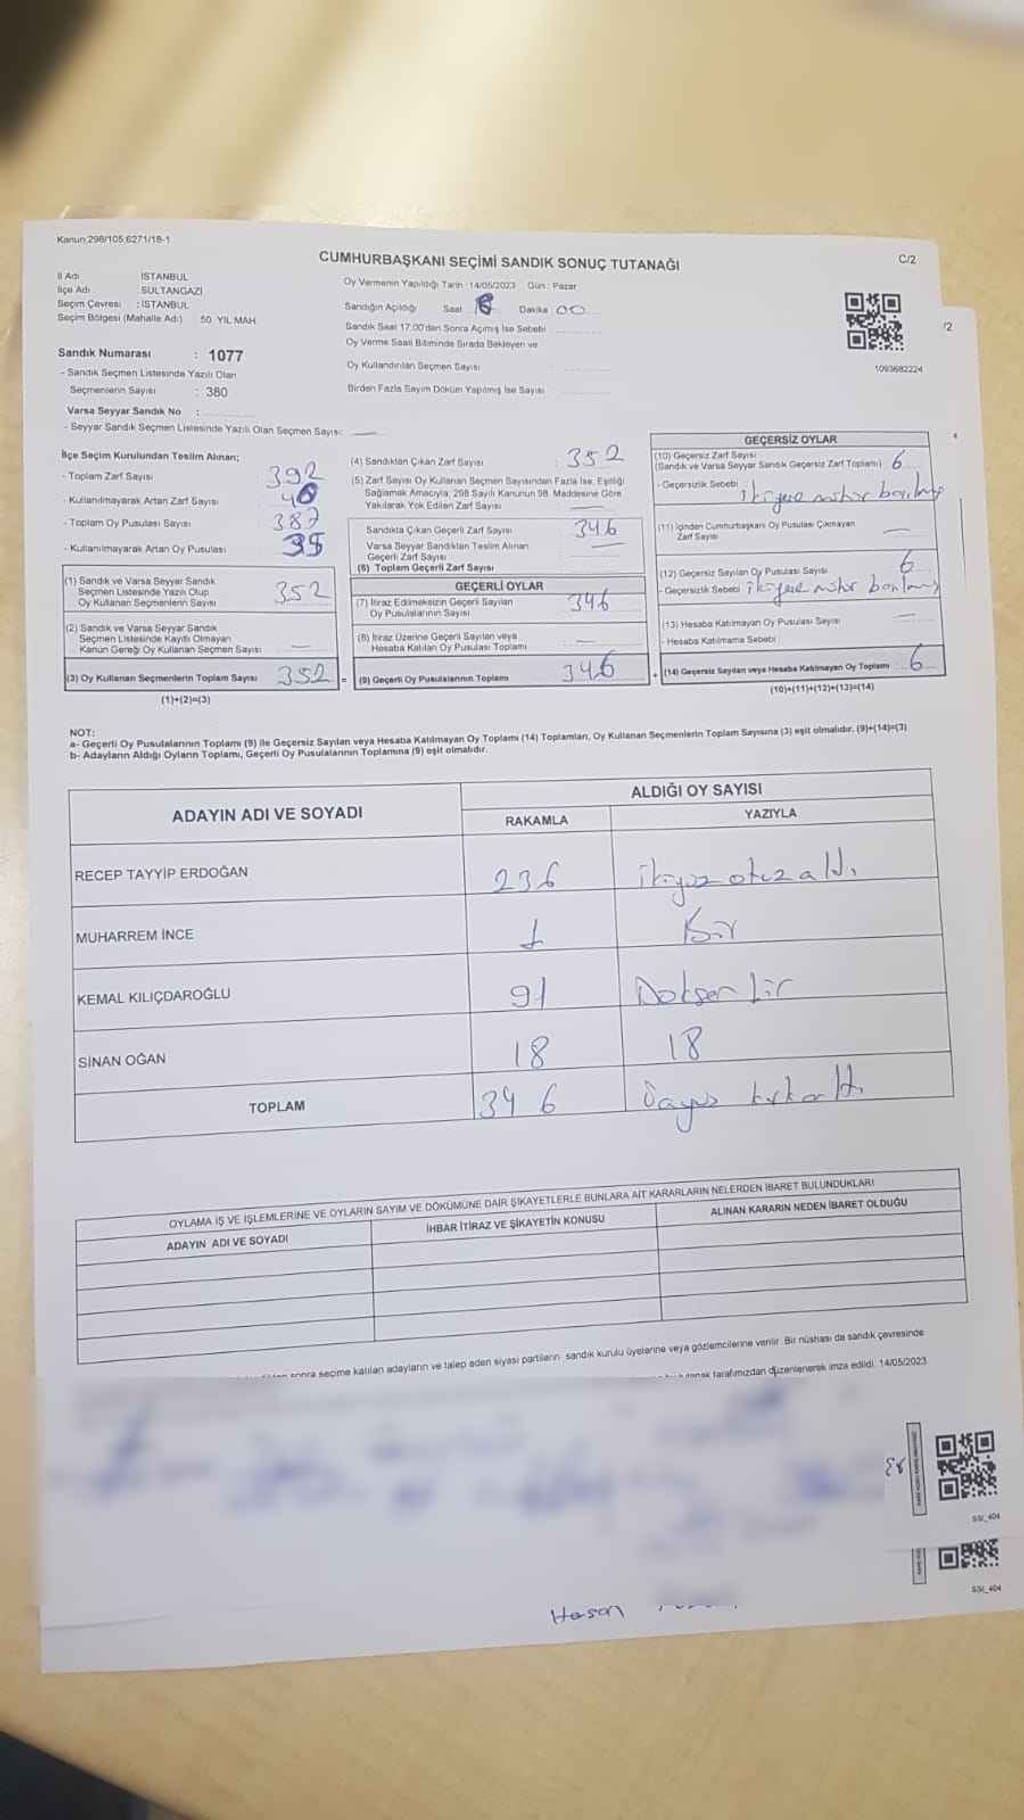 Kanun;298/105,6271/18-1
C/2
CUMHURBAŞKANI SEÇİMİ SANDIK SONUÇ TUTANAĞI
İl Adı : İSTANBUL
İlçe Adı : SULTANGAZİ
Seçim Çevresi : İSTANBUL
Seçim Bölgesi (Mahalle Adı) 50. YIL MAH.
Oy Vermenin Yapıldığı Tarih :14/05/2023 Gün : Pazar
Sandığın Açıldığı Saat Dakika 00
Sandık Saat 17.00'dan Sonra Açımış İse Sebebi
Oy Verme Saati Bitiminde Sırada Bekleyen ve
Oy Kullandırılan Seçmen Sayısı
Birden Fazla Sayım Döküm Yapılmış İse Sayısı
/2
1093682224
Sandık Numarası : 1077
- Sandık Seçmen Listesinde Yazılı Olan
Seçmenlerin Sayısı : 380
Varsa Seyyar Sandık No :
- Seyyar Sandık Seçmen Listesinde Yazılı Olan Seçmen Sayısı: —
İlçe Seçim Kurulundan Teslim Alınan;
- Toplam Zarf Sayısı 392
- Kullanılmayarak Artan Zarf Sayısı 40
- Toplam Oy Pusulası Sayısı 387
- Kullanılmayarak Artan Oy Pusulası 35
(1) Sandık ve Varsa Seyyar Sandık
Seçmen Listesinde Yazılı Olup
Oy Kullanan Seçmenlerin Sayısı 352
(2) Sandık ve Varsa Seyyar Sandık
Seçmen Listesinde Kayıtlı Olmayan
Kanun Gereği Oy Kullanan Seçmen Sayısı —
(3) Oy Kullanan Seçmenlerin Toplam Sayısı 352 =
(1)+(2)=(3)
(4) Sandıktan Çıkan Zarf Sayısı : 352
(5) Zarf Sayısı Oy Kullanan Seçmen Sayısından Fazla İse, Eşitliği
Sağlamak Amacıyla, 298 Sayılı Kanunun 98. Maddesine Göre
Yakılarak Yok Edilen Zarf Sayısı —
Sandıkta Çıkan Geçerli Zarf Sayısı 346
Varsa Seyyar Sandıktan Teslim Alınan
Geçerli Zarf Sayısı —
(6) Toplam Geçerli Zarf Sayısı
GEÇERLİ OYLAR
(7) İtiraz Edilmeksizin Geçerli Sayılan
Oy Pusulalarının Sayısı 346
(8) İtiraz Üzerine Geçerli Sayılan veya
Hesaba Katılan Oy Pusulası Toplamı —
(9) Geçerli Oy Pusulalarının Toplamı 346 +
GEÇERSİZ OYLAR
(10) Geçersiz Zarf Sayısı
(Sandık ve Varsa Seyyar Sandık Geçersiz Zarf Toplamı) 6
- Geçersizlik Sebebi
(11) İçinden Cumhurbaşkanı Oy Pusulası Çıkmayan
Zarf Sayısı —
(12) Geçersiz Sayılan Oy Pusulası Sayısı 6
- Geçersizlik Sebebi
(13) Hesaba Katılmayan Oy Pusulası Sayısı —
- Hesaba Katılmama Sebebi
(14) Geçersiz Sayılan veya Hesaba Katılmayan Oy Toplamı 6
(10)+(11)+(12)+(13)=(14)
NOT:
a- Geçerli Oy Pusulalarının Toplamı (9) ile Geçersiz Sayılan veya Hesaba Katılmayan Oy Toplamı (14) Toplamları, Oy Kullanan Seçmenlerin Toplam Sayısına (3) eşit olmalıdır. (9)+(14)=(3)
b- Adayların Aldığı Oyların Toplamı, Geçerli Oy Pusulalarının Toplamına (9) eşit olmalıdır.
ADAYIN ADI VE SOYADI ALDIĞI OY SAYISI
RAKAMLA YAZIYLA
RECEP TAYYİP ERDOĞAN 236 ikiyüz otuz altı
MUHARREM İNCE 1 Bir
KEMAL KILIÇDAROĞLU 91 Doksan bir
SİNAN OĞAN 18 18
TOPLAM 346 üçyüz kırkaltı
OYLAMA İŞ VE İŞLEMLERİNE VE OYLARIN SAYIM VE DÖKÜMÜNE DAİR ŞİKAYETLERLE BUNLARA AİT KARARLARIN NELERDEN İBARET BULUNDUKLARI
ADAYIN ADI VE SOYADI İHBAR İTİRAZ VE ŞİKAYETİN KONUSU ALINAN KARARIN NEDEN İBARET OLDUĞU
sonra seçime katılan adayların ve talep eden siyasi partilerin sandık kurulu üyelerine veya gözlemcilerine verilir. Bir nüshası da sandık çevresinde
tarafımızdan düzenlenerek imza edildi. 14/05/2023
SSI_404
SSI_404
Hasan